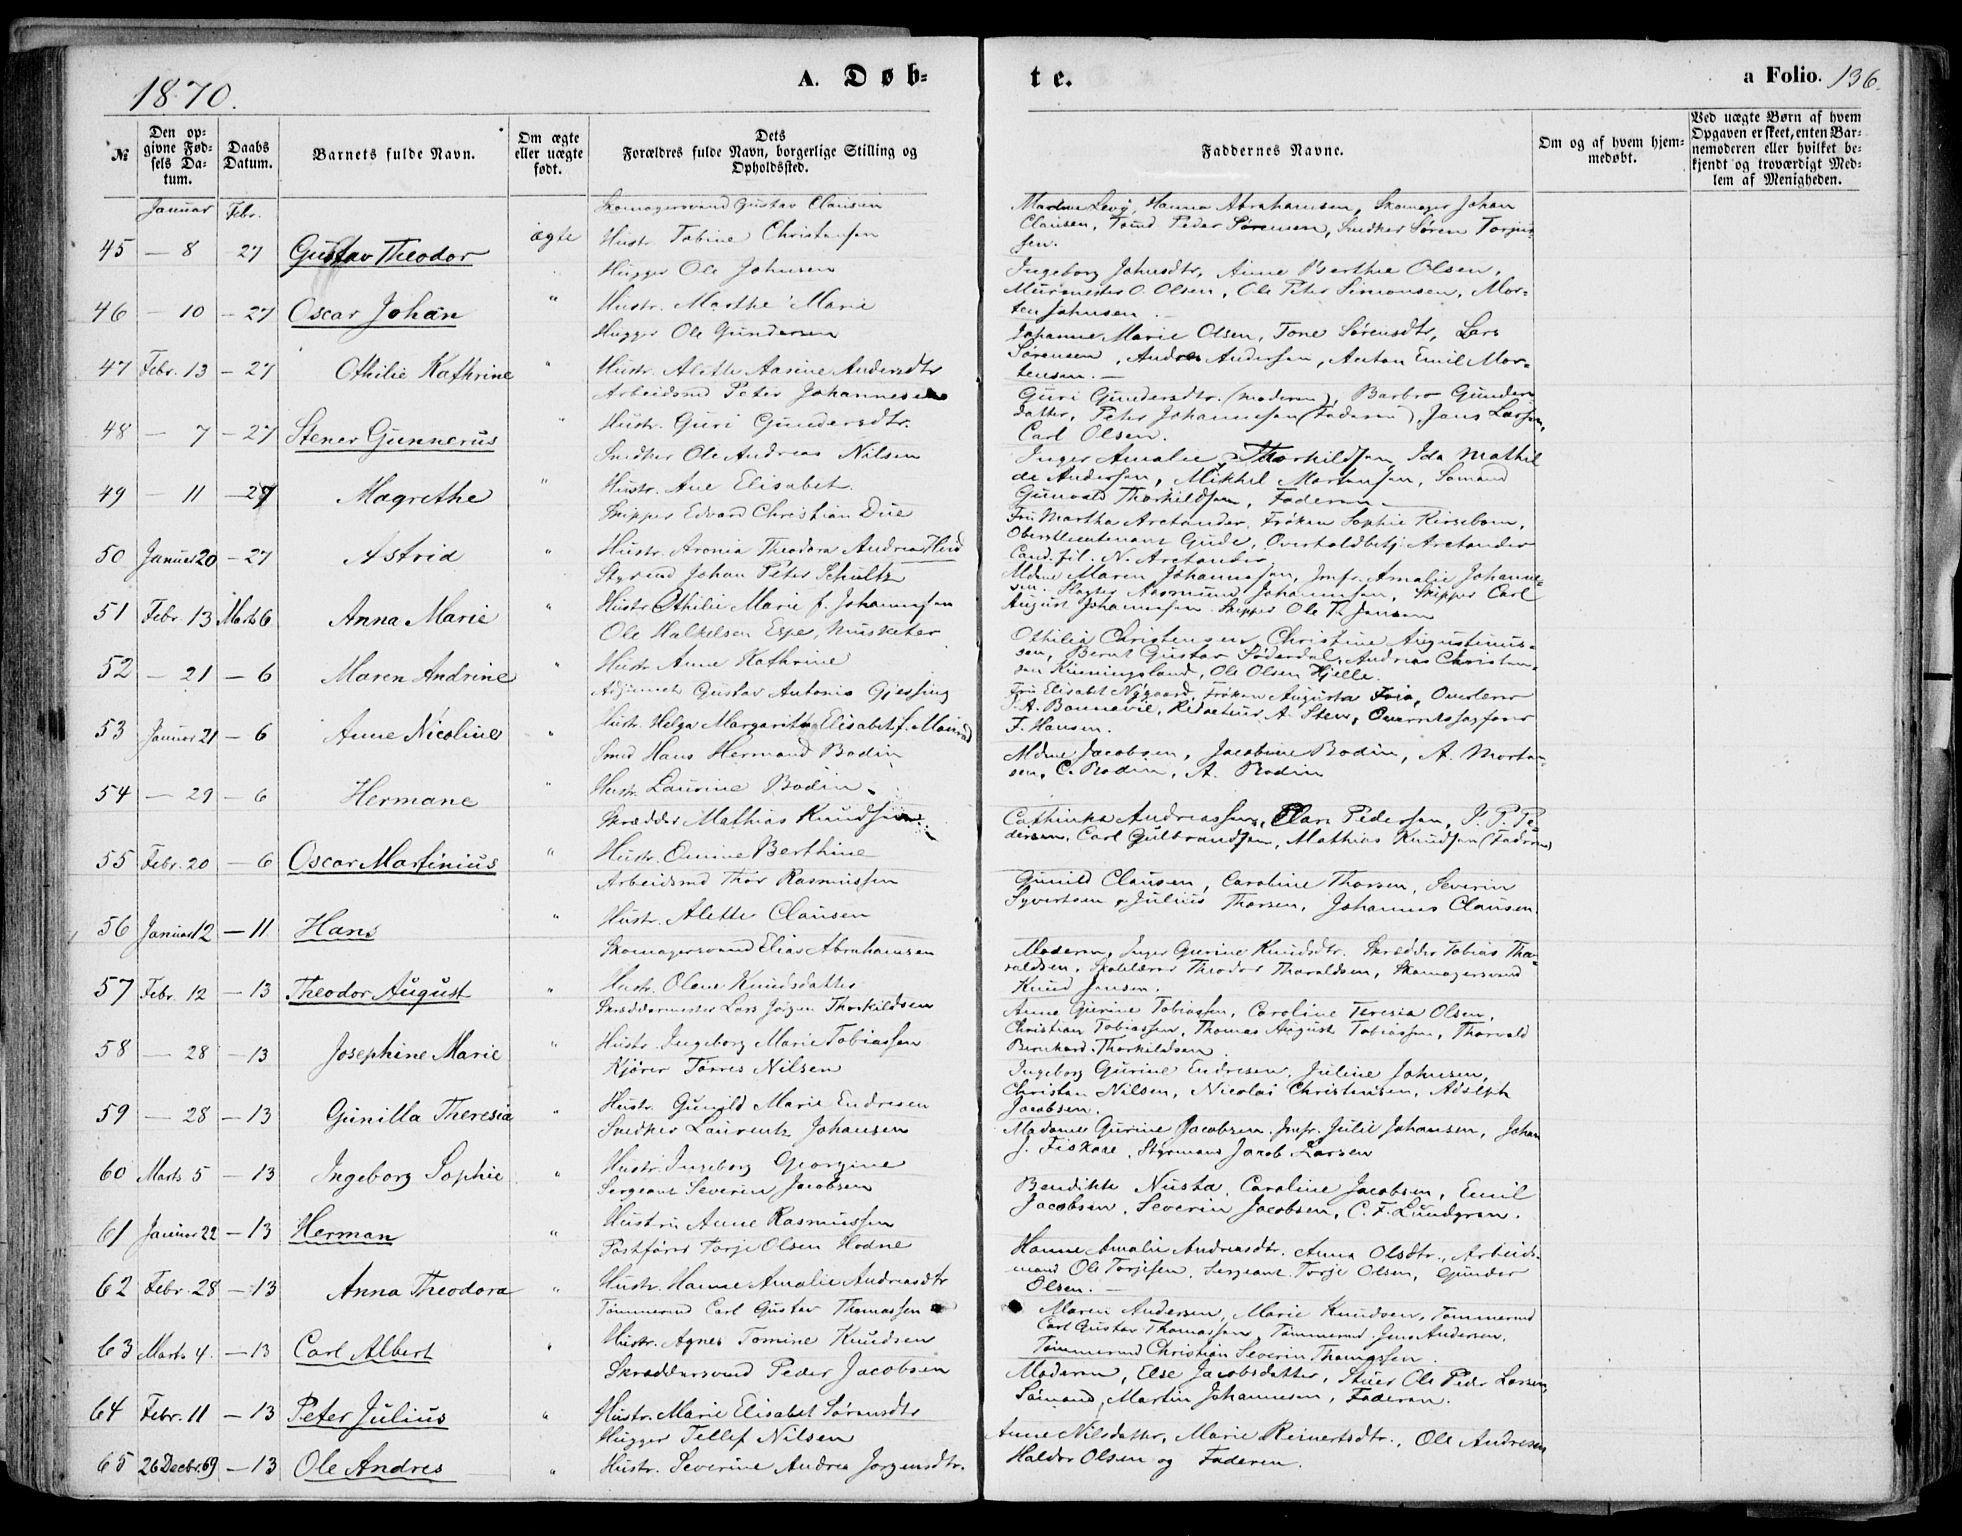 1870.
A. Døb-
te.
a Folio. 136.
№
Den op-
givne Fød-
sels Da-
tum.
Daabs
Datum.
Barnets fulde Navn.
Om ægte
eller uægte
født.
Dets
Forældres fulde Navn, borgerlige Stilling og
Opholdssted.
Faddernes Navne.
Om og af hvem hjem-
medøbt.
Ved uægte Børn af hvem
Opgaven er skeet, enten Bar-
nemoderen eller hvilket be-
kjendt og troværdigt Med-
lem af Menigheden.
Januar Febr.
45 — 8 27 Gustav Theodor ægte
Skomagersvend Gustav Clausen
Hustr. Tobine Christensen
Levy, Hanna Abrahamsen, Skomager Johan
Clausen, Peder Sørensen, Snedker Søren Torjus-
sen.
46 — 10 — 27 Oscar Johan "
Hugger Ole Johnsen
Hustr. Marthe Marie
Ingeborg Johnsdtr, Anne Berthe Olsen,
Murmester O. Olsen, Ole Peter Simonsen, Mor-
ten Johnsen.
47 Febr. 13 — 27 Othilie Kathrine "
Hugger Ole Gundersen
Hustr. Alette Aasine Andersdtr
Johanne Marie Olsen, Tone Sørensdtr, Lars
Sørensen, Andres Andersen, Anton Emil Mor-
tensen. —
48 — 7 — 27 Stener Gunnerus "
Arbeidsmd Peter Johannesen
Hustr. Guri Gundersdtr.
Guri Gundersdtr. (moderen), Barbro Gunders-
datter, Peter Johannesen (Faderen), Jens Larsen,
Carl Olsen.
49 — 11 — 27 Magrethe "
Snedker Ole Andreas Nilsen
Hustr. Ane Elisabet.
Inger Amalie Thorkildsen, Ida Mathil
de Andersen, Mikkel Mortensen, Sømand
Gunvald Thorkildsen, Faderen —
50 Januar 20 — 27 Astrid "
Skipper Edvard Christian Due
Hustr. Aronia Theodora Andrea Hind
Fru Martha Arctander, Frøken Sophie Kirsebom,
Oberstlieutenant Gude, Arctander
Cand. fil. N. Arctander
51 Febr. 13 Marts 6 Anna Marie "
Styrmd Johan Peter Schultz
Hustr Othilie Marie f. Johannesen
Mdme Maren Johannesen, Jmfr. Amalie Johannes-
sen. Slagter Johannesen, Skipper Carl
August Johannesen. Skipper Ole T. Jensen
52 — 21 — 6 Maren Andrine "
Ole Halkelsen Espe, Musketer
Hustr Anne Kathrine
Othilia Christensen, Christine Augustinus-
sen, Bernt Gustav Søderdal, Andreas Christen-
sen, Ole Olsen Hjelle.
53 Januar 21 — 6 Anne Nicoline "
Adjunct Gustav Antonio Gjessing
Hustr. Helga Margarithe Elisabet f.
Fru Elisabet Nygaard, Frøken Augusta, Overlærer
J. A. Bonnevie, Redacteur A. Sten, Overretssagfører
F. Hansen.
54 — 29 — 6 Hermane "
Smed Hans Hermand Bodin
Hustr Laurine Bodin.
Mdme Jacobsen, Jacobine Bodin, A. Morten-
sen, C. Bodin, A. Bodin
55 Febr. 20 — 6 Oscar Martinius "
Skrædder Mathias Knudsen
Hustr. Berthine
Cathinka Andreassen, Pedersen, P. Pe-
dersen, Carl Gulbrandsen, Mathias Knudsen (Faderen)
56 Januar 12 — 11 Hans "
Arbeidsmd Thor Rasmussen
Hustr. Alette Clausen
Gunild Clausen, Caroline Thorsen, Severin
Syvertsen, Julius Thorsen, Johannes Clausen.
57 Febr. 12 — 13 Theodor August "
Skomagersvend Elias Abrahamsen
Hustr. Olene Knudsdatter
Moderen, Inger Gurine Knudsdtr. Skrædder Tobias Tho-
raldsen, Theodor Thoraldsen, Skomagersvend
Knud Jensen.
58 — 28 — 13 Josephine Marie "
Skræddermester Lars Jørgen Thorkildsen
Hustr. Ingeborg Marie Tobiassen
Anne Gurine Tobiassen, Caroline Teresia Olsen,
Christian Tobiassen, Thomas August Tobiassen, Thorvald
Bernhard Thorkildsen.
59 — 28 — 13 Gunilla Theresia "
Kjører Tørres Nilsen
Hustr. Gunild Marie Endresen
Ingeborg Gurine Endresen, Juline Johnsen,
Christen Nilsen, Nicolai Christensen, Adolph
Jacobsen.
60 Marts 5 — 13 Ingeborg Sophie "
Snedker Laurentz Johansen
Hustr. Ingeborg Georgine
Madame Gurine Jacobsen. Jmfr. Julie Johansen, Johan
J. Fiskaae, Styrmand Jacob Larsen
61 Januar 22 — 13 Herman "
Sergeant Severin Jacobsen
Hustru Anne Rasmussen
Bendikte Nusta, Caroline Jacobsen, Emil
Jacobsen, Severin Jacobsen, C. F. Lundgren.
62 Febr. 28 — 13 Anna Theodora "
Postfører Torje Olsen Hodne
Hustr. Hanne Amalie Andreasdtr
Hanne Amalie Andreasdtr. Anna Olsdtr., Arbeids-
mand Ole Torjesen, Sergeant Torje Olsen, Gunder
Olsen. —
63 Marts 4. — 13 Carl Albert "
Tømmermd Carl Gustav Thomassen
Hustr. Agnes Tomine Knudsen
Maren Andersen, Marie Knudsen, Tømmermd
Carl Gustav Thomassen, Tømmermd Jens Andersen,
Tømmermd Christian Severin Thomassen.
64 Febr. 11 — 13 Peter Julius "
Skræddersvend Peder Jacobsen
Hustr. Marie Elisabet Sørensdtr
Moderen, Else Jacobsdatter, Stuer Ole Peder Larsen,
Sømand Martin Johannesen, Faderen.
65 26 Decbr. 69 — 13 Ole Andres "
Hugger Tellef Nilsen
Hustr. Severine Andrea Jørgensdtr.
Anne Nilsdatter, Marie Reinertsdtr., Ole Andresen
Haldor Olsen og Faderen.